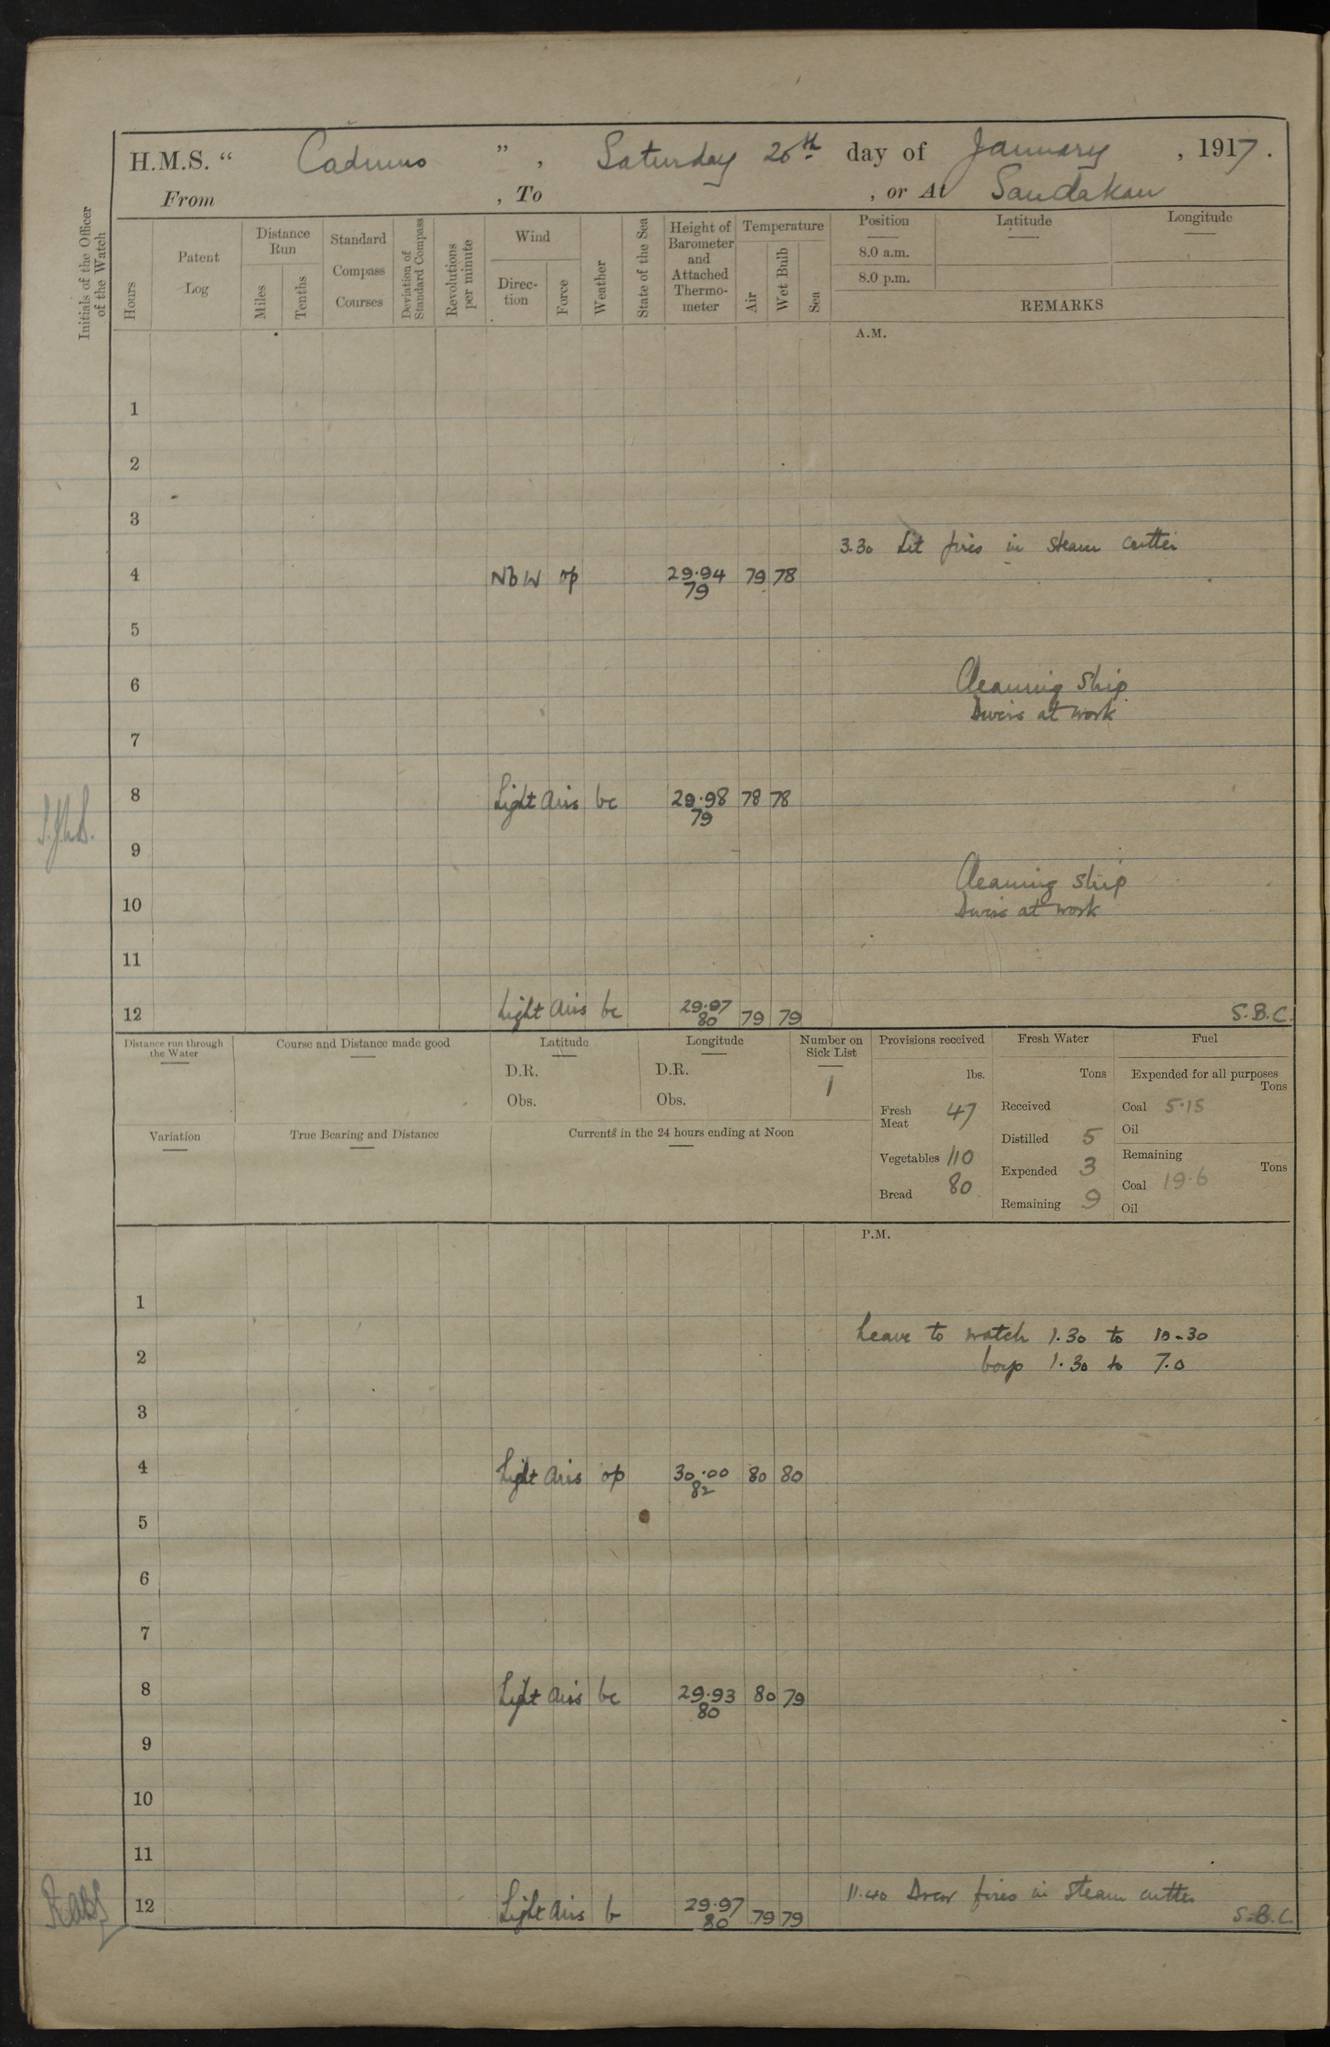 H.M.S. “ Cadmus ” , Saturday 20th day of January , 1917.
From , To , or At Sandakan
Initials of the Officer of the Watch
Hours
Patent Log
Distance Run
Miles
Tenths
Standard Compass Courses
Deviation of Standard Compass
Revolutions per minute
Wind
Direc-tion
Force
Weather
State of the Sea
Height of Barometer and Attached Thermo-meter
Temperature
Air
Wet Bulb
Sea
Position Latitude Longitude
8.0 a.m.
8.0 p.m.
REMARKS
A.M.
1
2
3
3.30 Lit fires in steam cutter
4 NbW op 29.94 79 78
79
5
6 Cleaning Ship
Divers at work
7
8 Light airs bc 29.98 78 78
79
9
Cleaning ship
10 Divers at work
11
12 Light airs bc 29.97 79 79 S.B.C.
80
Distance run through the Water
Course and Distance made good
Latitude
D.R.
Obs.
Longitude
D.R.
Obs.
Number on Sick List
1
Variation
True Bearing and Distance
Currents in the 24 hours ending at Noon
Provisions received
lbs.
Fresh Meat 47
Vegetables 110
Bread 80
Fresh Water
Tons
Received
Distilled 5
Expended 3
Remaining 9
Fuel
Expended for all purposes
Tons
Coal 5.15
Oil
Remaining
Tons
Coal 19.6
Oil
P.M.
1
Leave to watch 1.30 to 10-30
2 boys 1.30 to 7.0
3
4 Light airs op 30.00 80 80
82
5
6
7
8 Light airs bc 29.93 80 79
80
9
10
11
11.40 Drew fires in steam cutter
12 Light airs b 29.97 79 79 S.B.C.
80